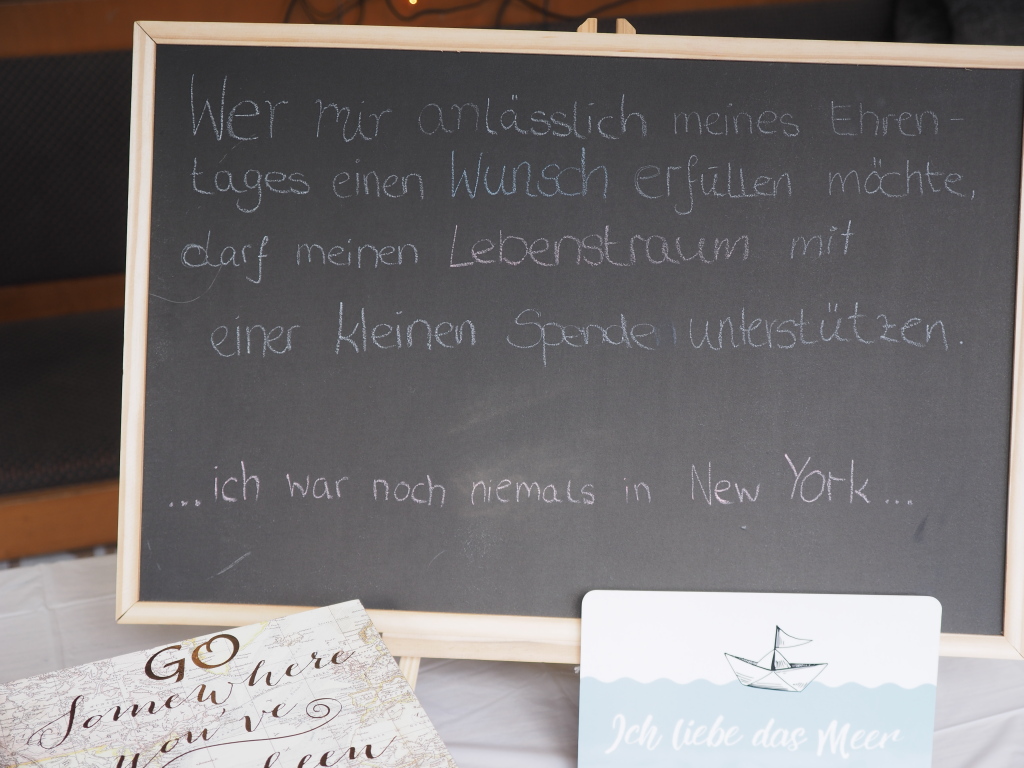 Wer mir anlässlich meines Ehren-
tages einen Wunsch erfüllen möchte,
darf meinen Lebenstraum mit
einer kleinen Spende unterstützen.
...ich war noch niemals in New York...
GO
Somewhere
You've
Ich liebe das Meer